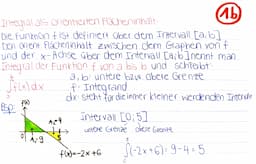 1b
Integral als orientierten Flächeninhalt
Die Funktion f ist definiert über dem Intervall [a,b]
Den orient Flächeninhalt zwischen dem Graphen von f
und der x-Achse über dem Intervall [a,b] nennt man
Integral der Funktion f von a bis b und schreibt
∫f(x) dx a, b: untere bzw. obere Grenze
f = Integrand
dx: steht für die immer kleiner werdenden Intervalle
Bsp:
f(x)
Intervall [0;5]
A₂=4
untere Grenze obere Grenze
A₁=9
f(x)=-2x+6
∫(-2x+6)=9-4=5